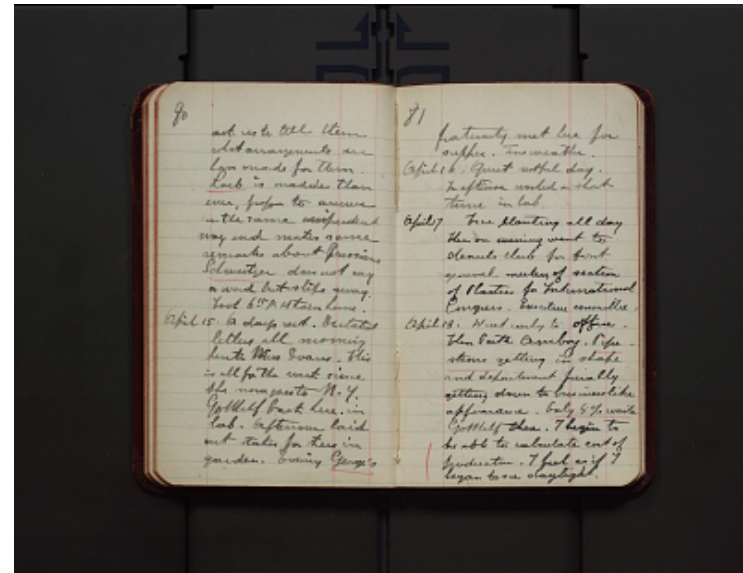 80
not us to tell them
what arrangements are
been made for them.
Loeb is madder than
ever, to answer
in the same
way and makes some
remarks about Prussians
Schweitzer does not say
a word but slips away.
Took 6th P. M. train home.
April 15. A days rest. Dictated
letters all morning
to Miss Evans. This
is all for the week since
she now goes to N. Y.
Gottlelf back here in
lab. Afternoon laid
out stakes for trees in
garden. Evening George's
81
fraternity met here for
supper. Fine weather.
April 16. Quiet restful day.
In afternoon worked a short
time in lab.
April 17 Tree planting all day
then in evening went to
Chemists Club for first
general meeting of section
of Plastics for International
Congress. Executive committee.
April 18. Went early to office.
then Perth Amboy.
getting in shape
and department finally
getting down to businesslike
appearance. Only 5% waste
Gottlelf there. I begin to
be able to calculate cost of
production. I feel as if I
began to see daylight.